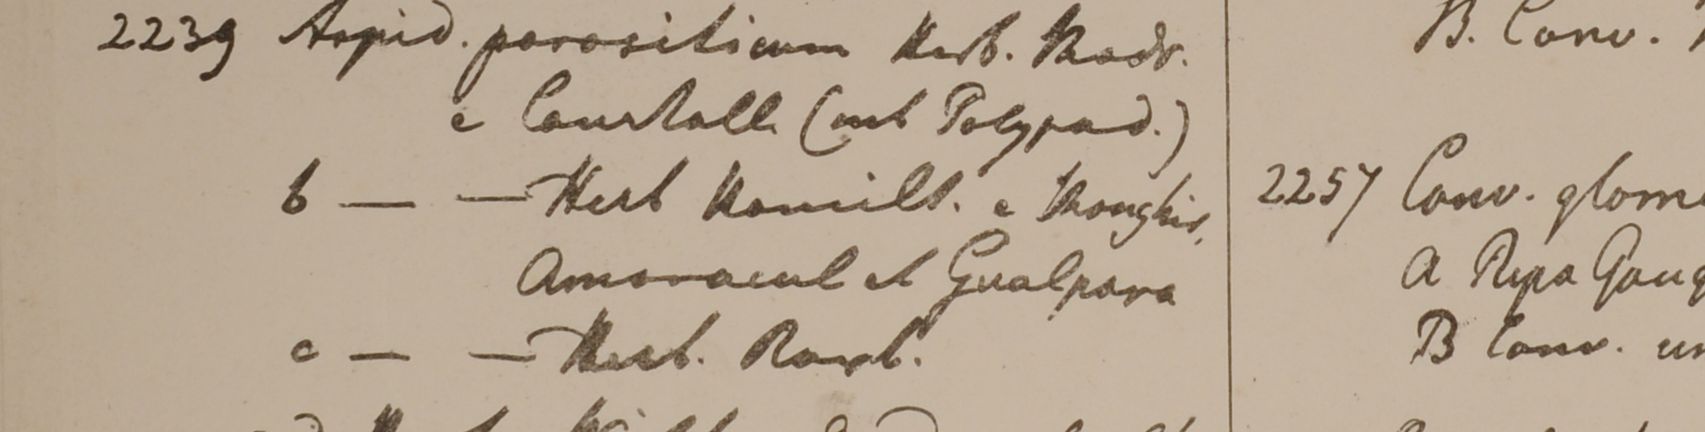 2239 Aspid. parasiticum Herb. Madr.
e Courtall. (sub Polypod.)
b — — Herb Hamilt. e Monghir,
Amoracul et Gualpara
c — — Herb. Roxb.
B. Conv.
2257 Conv. glom
A Ripa Gang
B Conv. un